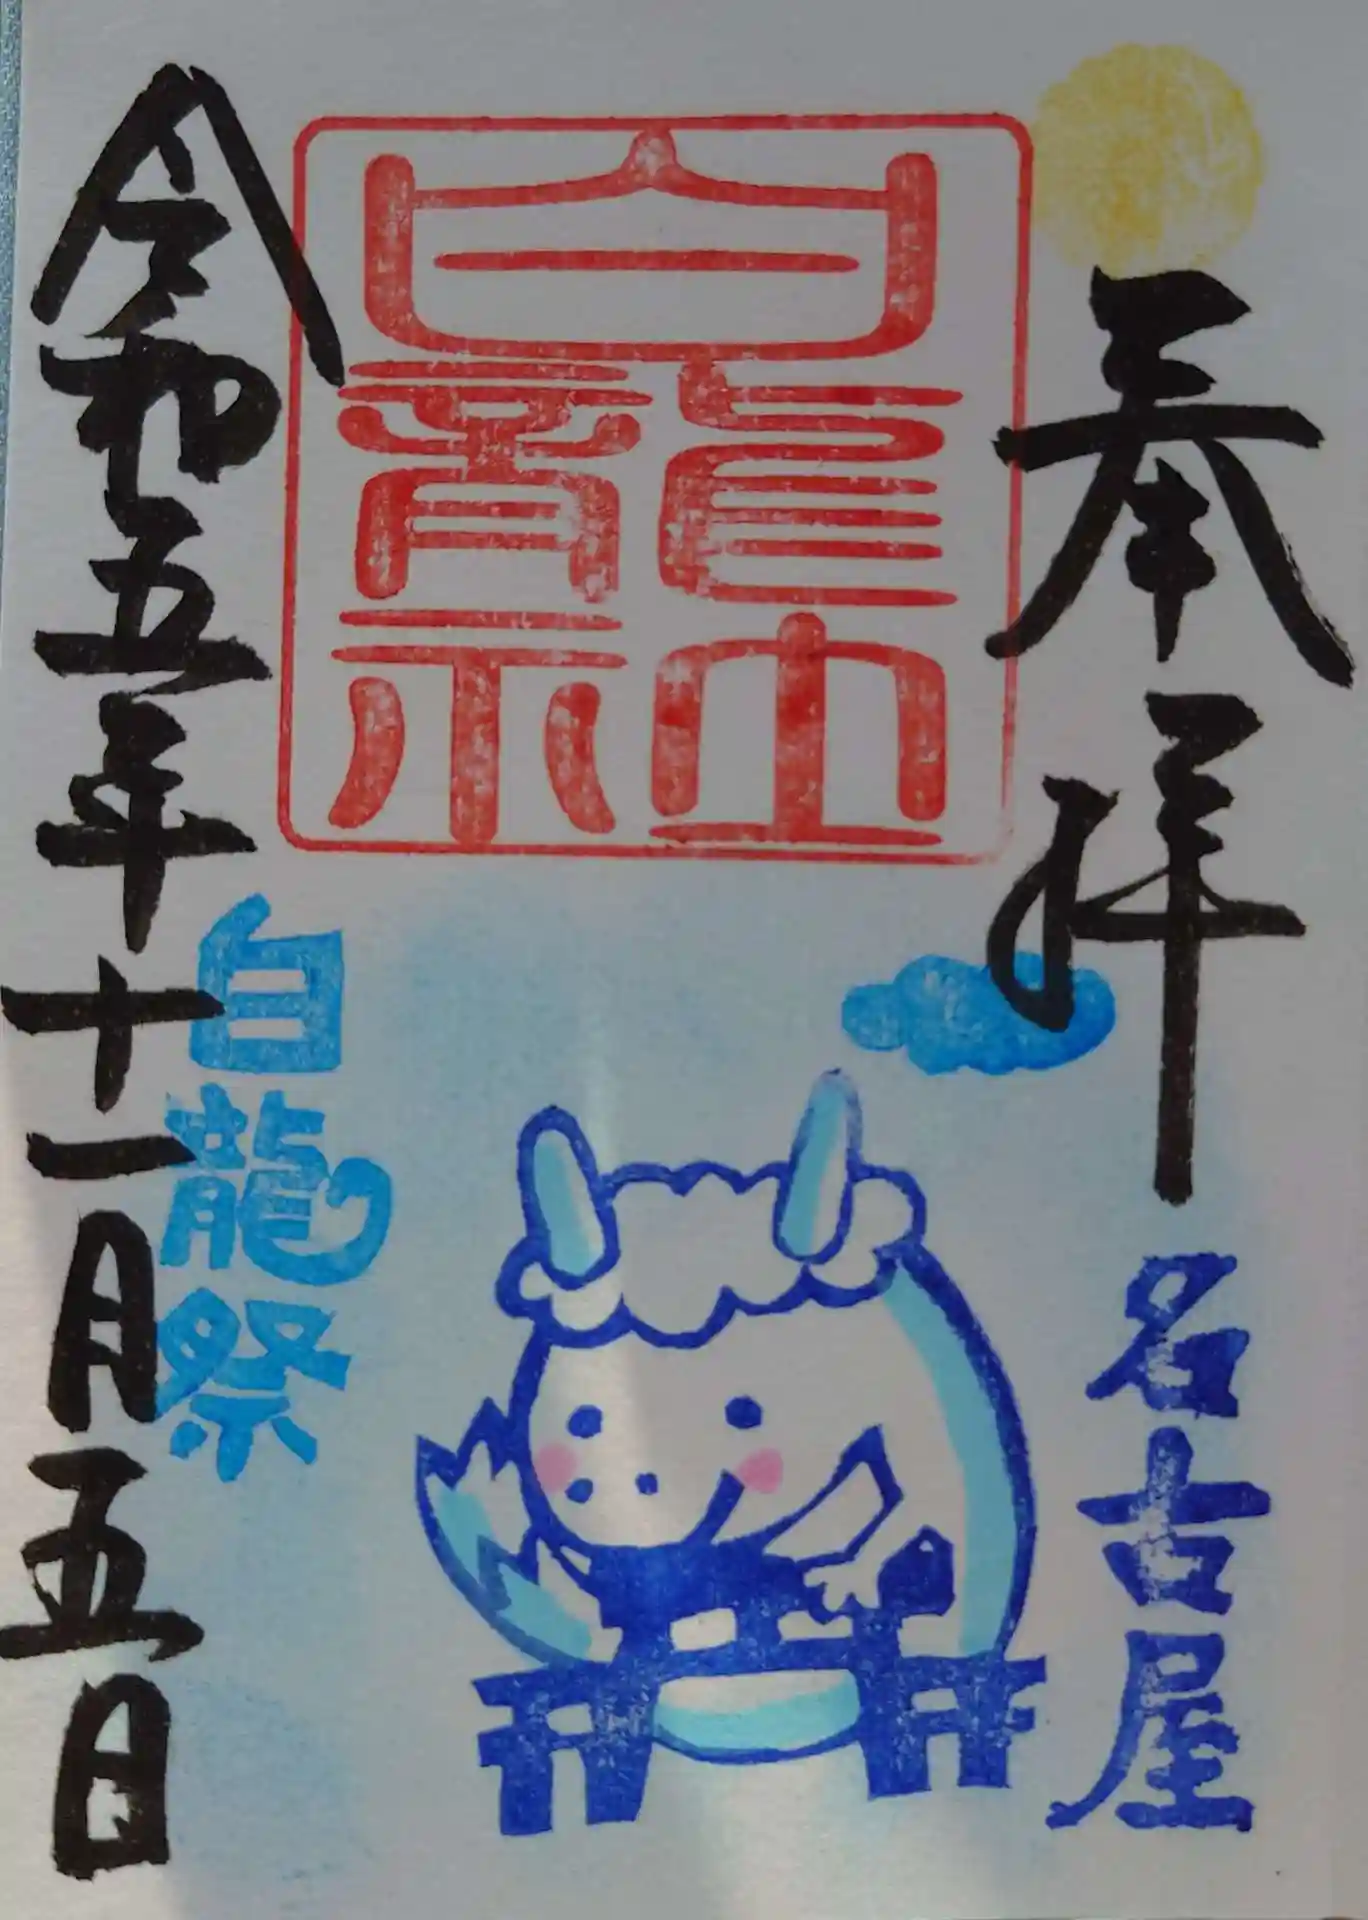 奉拝
名古屋
白龍社
白龍祭
令和五年十一月五日